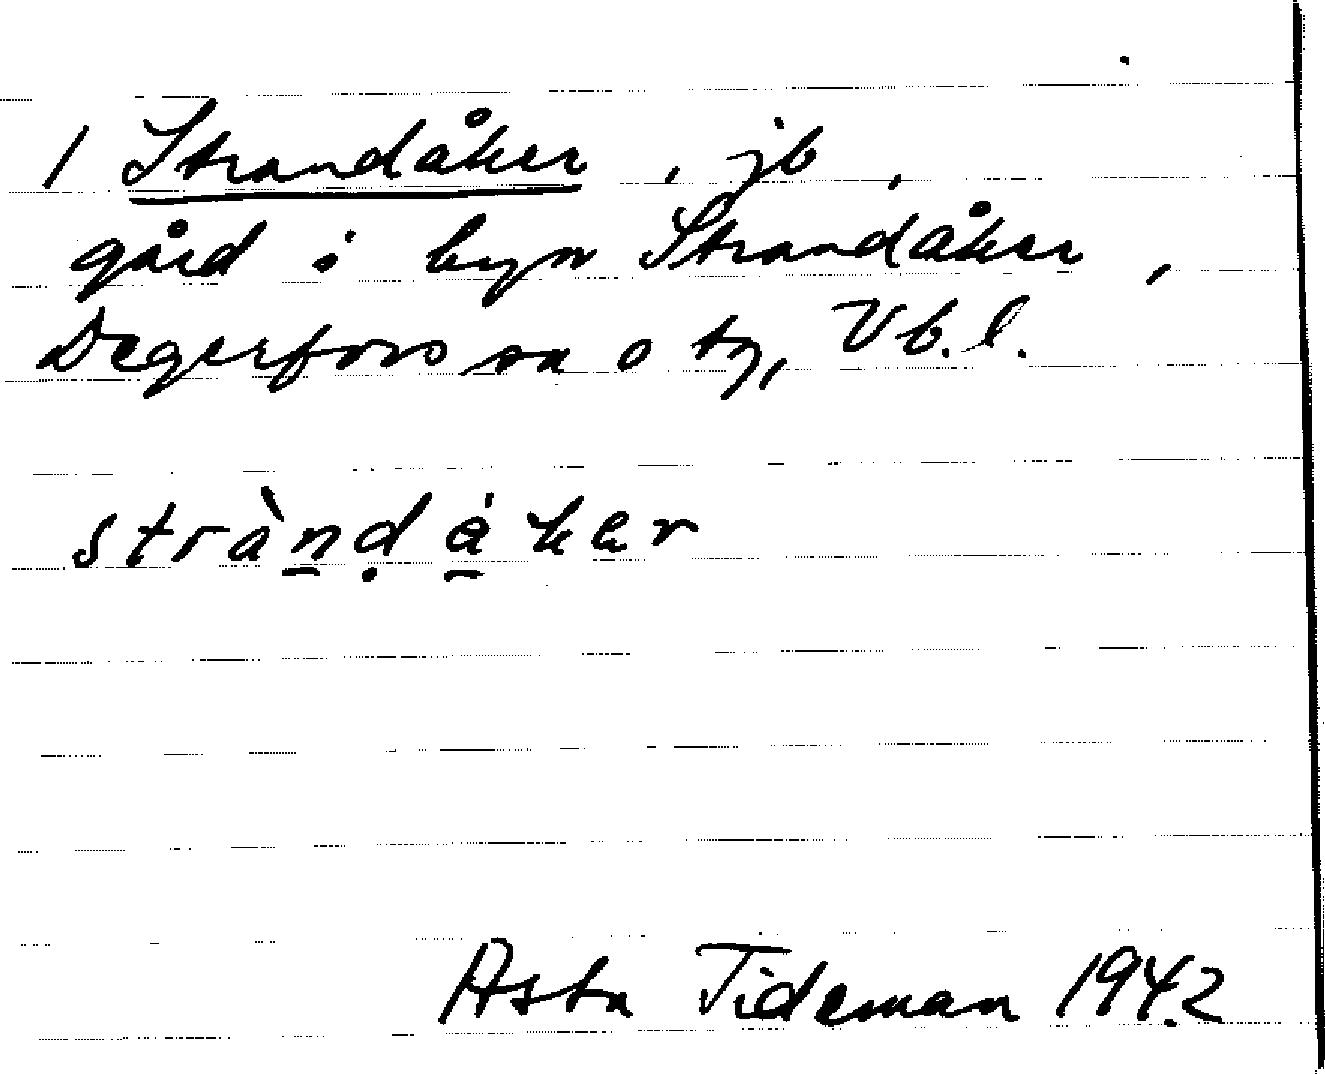 1 Strandåker, jb,
gård i byn Strandåker,
Degerfors sn o tg, Vb. l.
stràn̲ḍå̲ker
Asta Tideman 1942